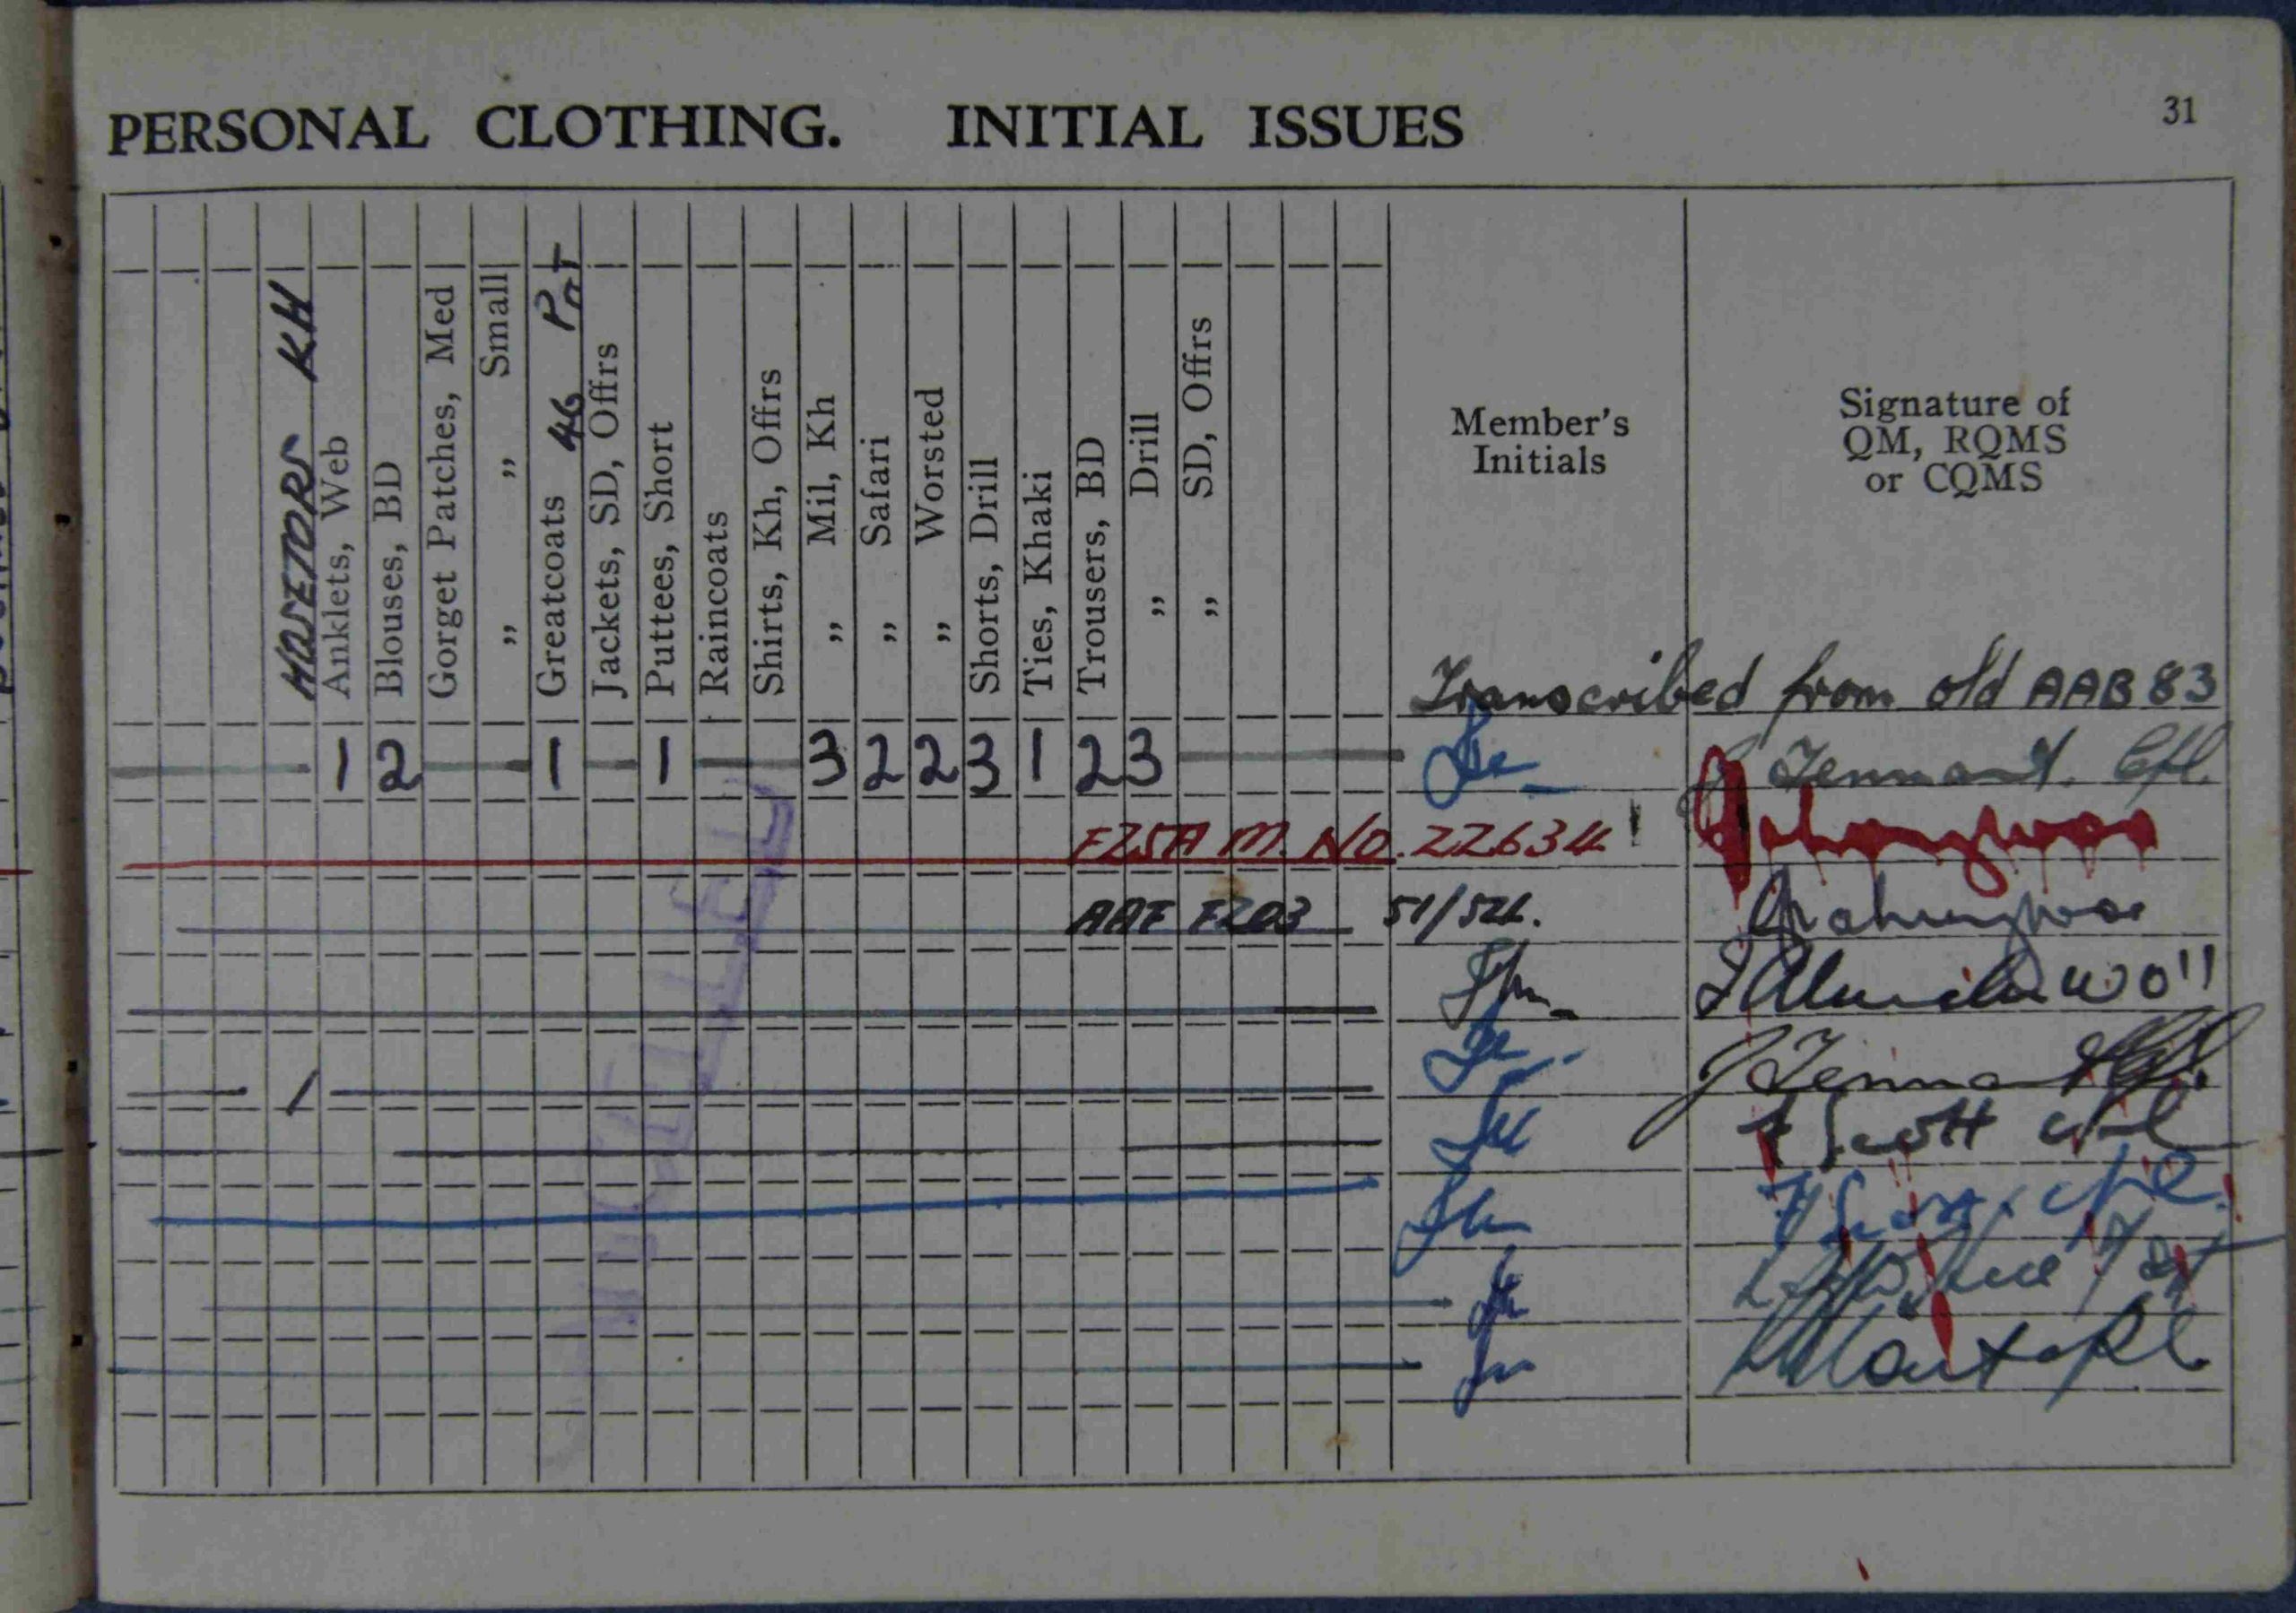 PERSONAL CLOTHING. INITIAL ISSUES
31
HOSETOPS KH
Anklets, Web
Blouses, BD
Gorget Patches, Med
„ „ Small
Greatcoats 46 Pat
Jackets, SD, Offrs
Puttees, Short
Raincoats
Shirts, Kh, Offrs
„ Mil, Kh
„ Safari
„ Worsted
Shorts, Drill
Ties, Khaki
Trousers, BD
„ Drill
„ SD, Offrs
Member's
Initials
Signature of
QM, RQMS
or CQMS
Transcribed from old AAB 83
1 2 1 1 3 2 2 3 1 2 3 J Tennant. Cpl.
FZ5A M. No. 22634
AAF FZ03 51/52L.
WO11
1 J Tennant Cpl.
Scott Cpl
Cpl
CANCELLED